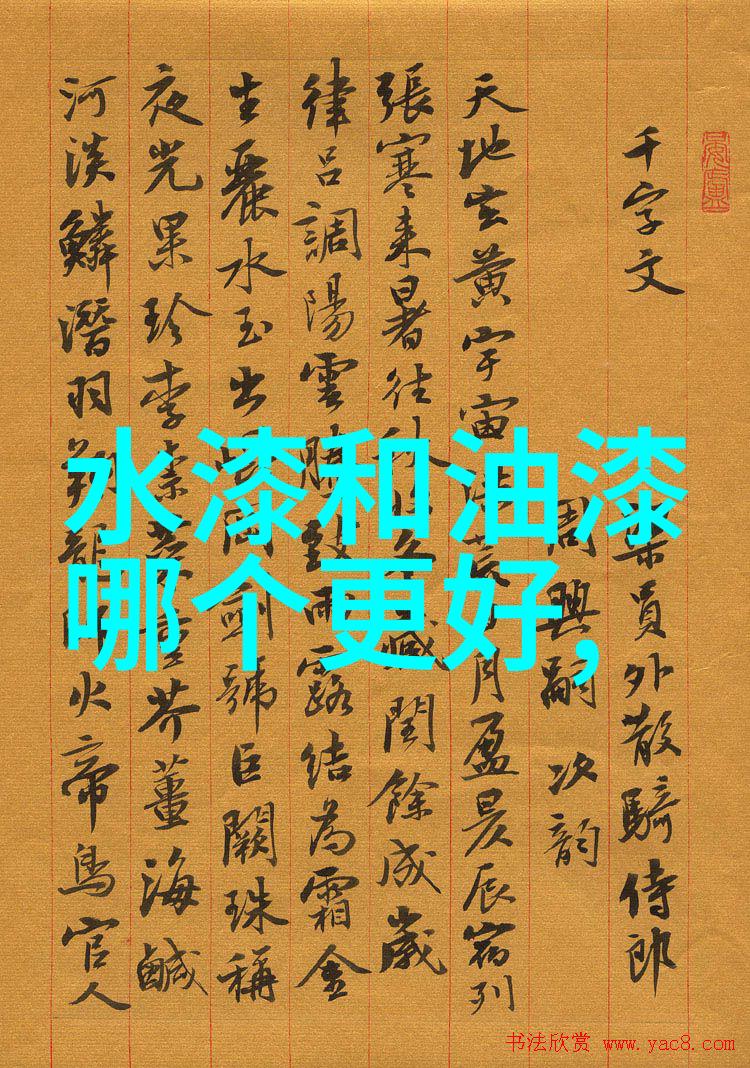 千字文
梁員外散騎侍郎
周興嗣次韵
天地玄黄宇宙洪荒日月盈昃辰宿列
張寒来暑往秋收冬藏閏餘成歲
律吕調陽雲騰致雨露結為霜金
生麗水玉出崑岡劍號巨闕珠稱
夜光果珍李柰菜重芥薑海鹹
河淡鱗潛羽翔龍師火帝鳥官人
水漆和油漆
哪个更好,
书法欣赏 www.yac8.com